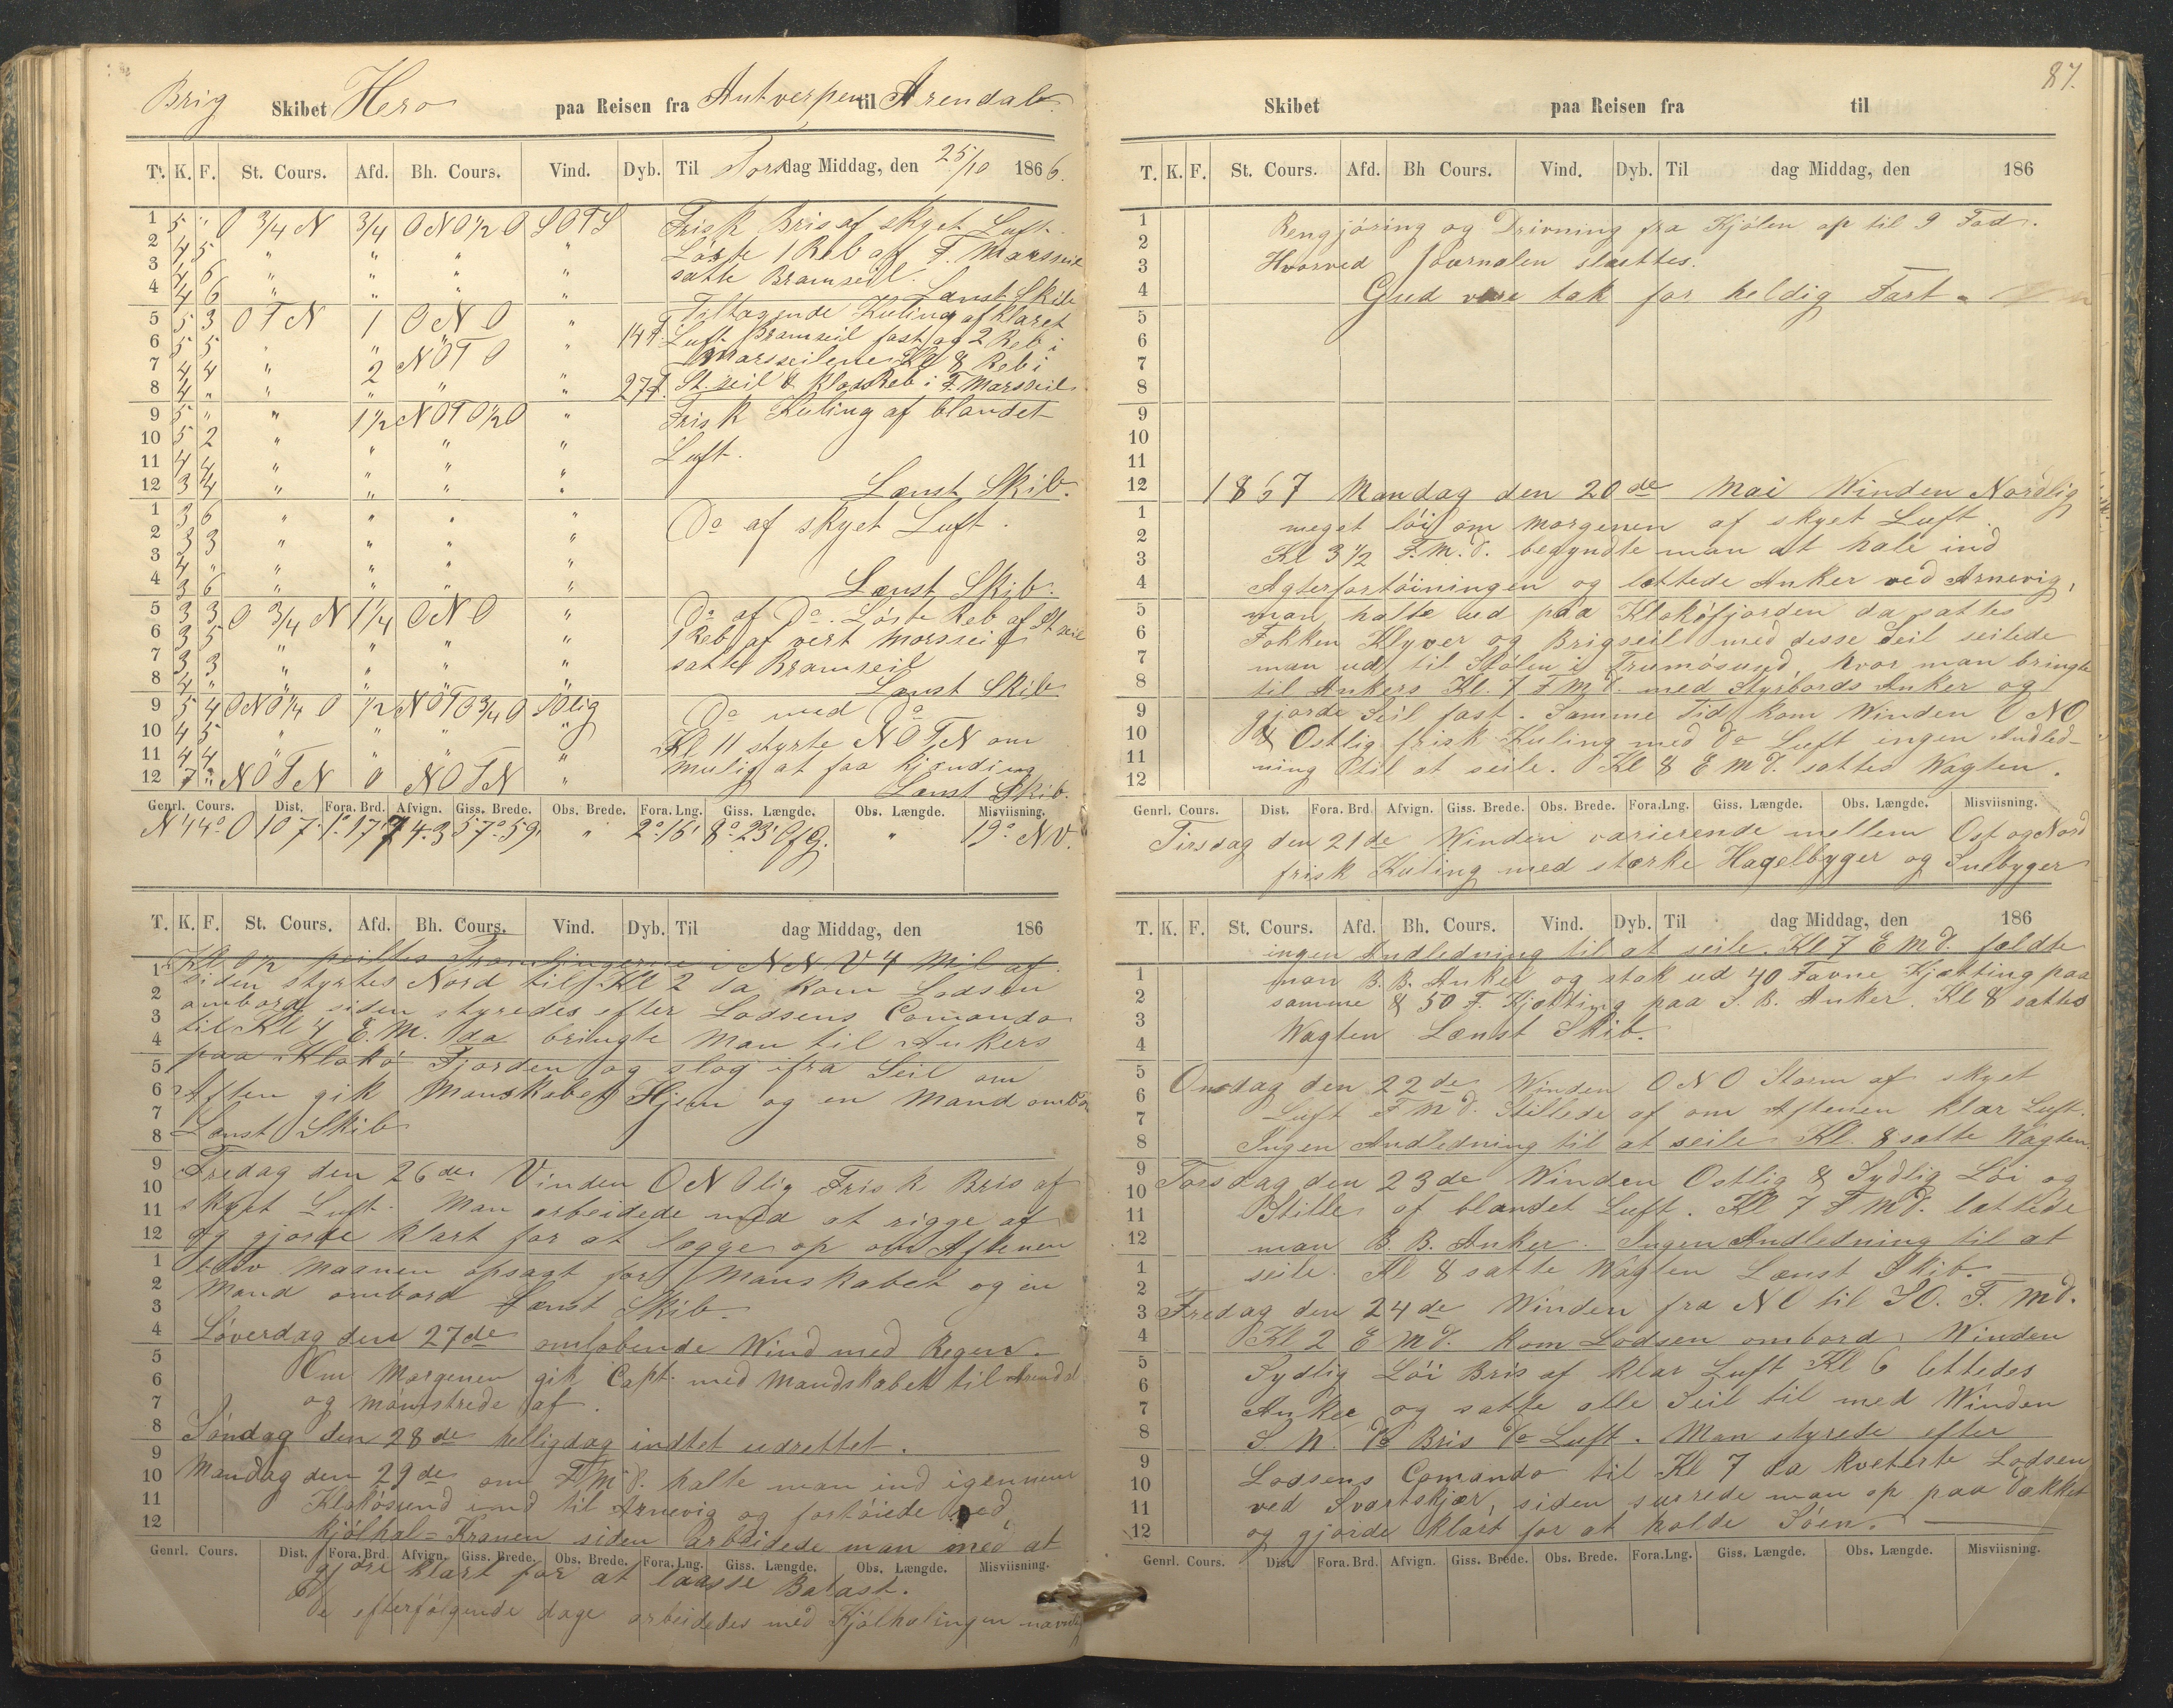 Brig Skibet Hero paa Reisen fra Antverpen til Arendal
T. K. F. St. Cours. Afd. Bh. Cours. Vind. Dyb. Til Torsdag Middag, den 25/10 1866.
1 5 " O 3/4 N 3/4 ONO 1/2 O SOTS Frisk Bris af skyet Luft.
2 4 5 " " " " Løste 1 Reb af F. Marsseil
3 4 6 " " " " satte Bramseil.
4 4 6 " " " " Lænst Skib
5 5 3 OTN 1 ONO " Tiltagende Kuling af klaret
6 5 5 " " NOTO " 14 F. Luft Bramseil fast og 2 Reb i
7 4 4 " 2 " " Marsseilene Kl 8 Reb i
8 4 " " " " " 27 F. St. seil & Klos Reb i F. Marsseil
9 5 " " 1 1/2 NOTO 1/2 O " Frisk Kuling af blandet
10 5 2 " " " " Luft.
11 4 4 " " " "
12 3 4 " " " " Lænst Skib.
1 3 6 " " " " Do af skyet Luft.
2 3 3 " " " "
3 4 " " " " "
4 3 6 " " " " Lænst Skib.
5 3 3 O 3/4 N 1 1/4 ONO " Do af Do. Løste Reb af St seil
6 3 5 " " " " 1 Reb af vert Marsseil
7 3 3 " " " " satte Bramseil
8 4 " " " " " Lænst Skib
9 5 4 ONO 1/4 O 1/2 NOTO 3/4 O SOlig Do med Do
10 4 5 " " " " Kl 11 styrte NOTN om
11 4 4 " " " " mulig at faa Kjending
12 7 " NOTN 0 NOTN " Lænst Skib.
Genrl. Cours. Dist. Fora. Brd. Afvign. Giss. Brede. Obs. Brede. Fora. Lng. Giss. Længde. Obs. Længde. Misviisning.
N 44° O 107. 1° 17' 74.3 57° 59' " 2° 16' 8° 23' OfG. " 19° NV.
T. K. F. St. Cours. Afd. Bh. Cours. Vind. Dyb. Til dag Middag, den 186
Kl 0 1/2 peiltes i NNV 4 Mil af.
siden styrtes Nord til Kl 2 da kom Lodsen
ombord siden styredes efter Lodsens Comando
til Kl 4 E.M. da bringte man til Ankers
paa Klokø Fjorden og slog ifra Seil om
Aften gik Manskabet Hjem og en Mand ombor
Lænst Skib
Fredag den 26de Vinden ONOlig Frisk Bris af
skyet Luft. Man arbeidede med at rigge af
og gjorde klart for at lægge op om Aftenen
blev maanen opsagt for Manskabet og en
Mand ombord Lænst Skib.
Løverdag den 27de omløbende Wind med Regen.
Om Morgenen gik Capt. med Mandskabet til Arendal
og mønstrede af.
Søndag den 28de helligdag indtet udrettet.
Mandag den 29de om F.Md. halte man ind igennem
Klokøsund ind til Arnevig og fortøiede ved
kjølhal=Kranen siden arbeidede man med at
gjøre klart for at laasse Balast.
De efterfølgende dage arbeidedes med Kjølhalingen
87.
Skibet paa Reisen fra til
T. K. F. St. Cours. Afd. Bh Cours. Vind. Dyb. Til dag Middag, den 186
1 Rengjøring og Drivning fra Kjølen op til 9 Fod.
2
3 Hvorved Journalen sluttes.
4 Gud være tak for heldig Fart.
5
6
7
8
9
10
11
12 1867 Mandag den 20de Mai Winden Nordlig
1 meget løi om morgenen af skyet Luft
2 Kl 3 1/2 F.M.d. begyndte man at hale ind
3 Agterfortøiningen og lættede Anker ved Arnevig,
4 man halte ud paa Klokøfjorden da sattes
5 Fokken Klyver og Brigseil med desse Seil seilede
6 man ud til Stølen i Trumøsund, hvor man bringte
7 til Ankers Kl. 7 F M d. med Styrbords Anker og
8 gjorde Seil fast. Samme Tid kom Winden ONO
9 & Ostlig frisk Kuling med Do Luft ingen Andled-
10 ning til at seile. Kl 8 E M d. sattes Wagten.
11
12
Genrl. Cours. Dist. Fora. Brd. Afvign. Giss. Brede. Obs. Brede. Fora.Lng. Giss. Længde. Obs. Længde. Misviisning.
Tirsdag den 21de Winden varierende mellem Ost og Nord
frisk Kuling med stærke Hagelbyger og Snebyger
T. K. F. St. Cours. Afd. Bh. Cours. Vind. Dyb. Til dag Middag, den 186
ingen Andledning til at seile. Kl 7 E M d. fældte
man B. B. Anker og stak ud 40 Favne Kjætting paa
samme & 50 F. Kjætting paa S. B. Anker. Kl 8 sattes
Wagten Lænst Skib.
Onsdag den 22de Winden ONO Storm af skyet
Luft F M d. Stillede af om Aftenen klar Luft.
Ingen Andledning til at seile Kl. 8 satte Wagten.
Torsdag den 23de Winden Ostlig & Sydlig Løi og
Stille af blandet Luft. Kl 7 F M d. lættede
man B. B. Anker. Ingen Andledning til at
seile. Kl 8 satte Wagten Lænst Skib.
Fredag den 24de Winden fra NO til SO. F. Md.
Kl 2 E M d. kom Lodsen ombord, Winden
Sydlig Løi Bris af klar Luft Kl 6 lettedes
Anker og satte alle Seil til med Winden
S W. Do Bris Do Luft. Man styrede efter
Lodsens Comando til Kl 7 da kviterte Lodsen
ved Svartskjær, siden surrede man op paa Dækket
og gjorde klart for at holde Søen.
Genrl. Cours. Dist. Fora. Brd. Afvign. Giss. Brede. Obs. Brede. Fora.Lng. Giss. Længde. Obs. Længde. Misviisning.